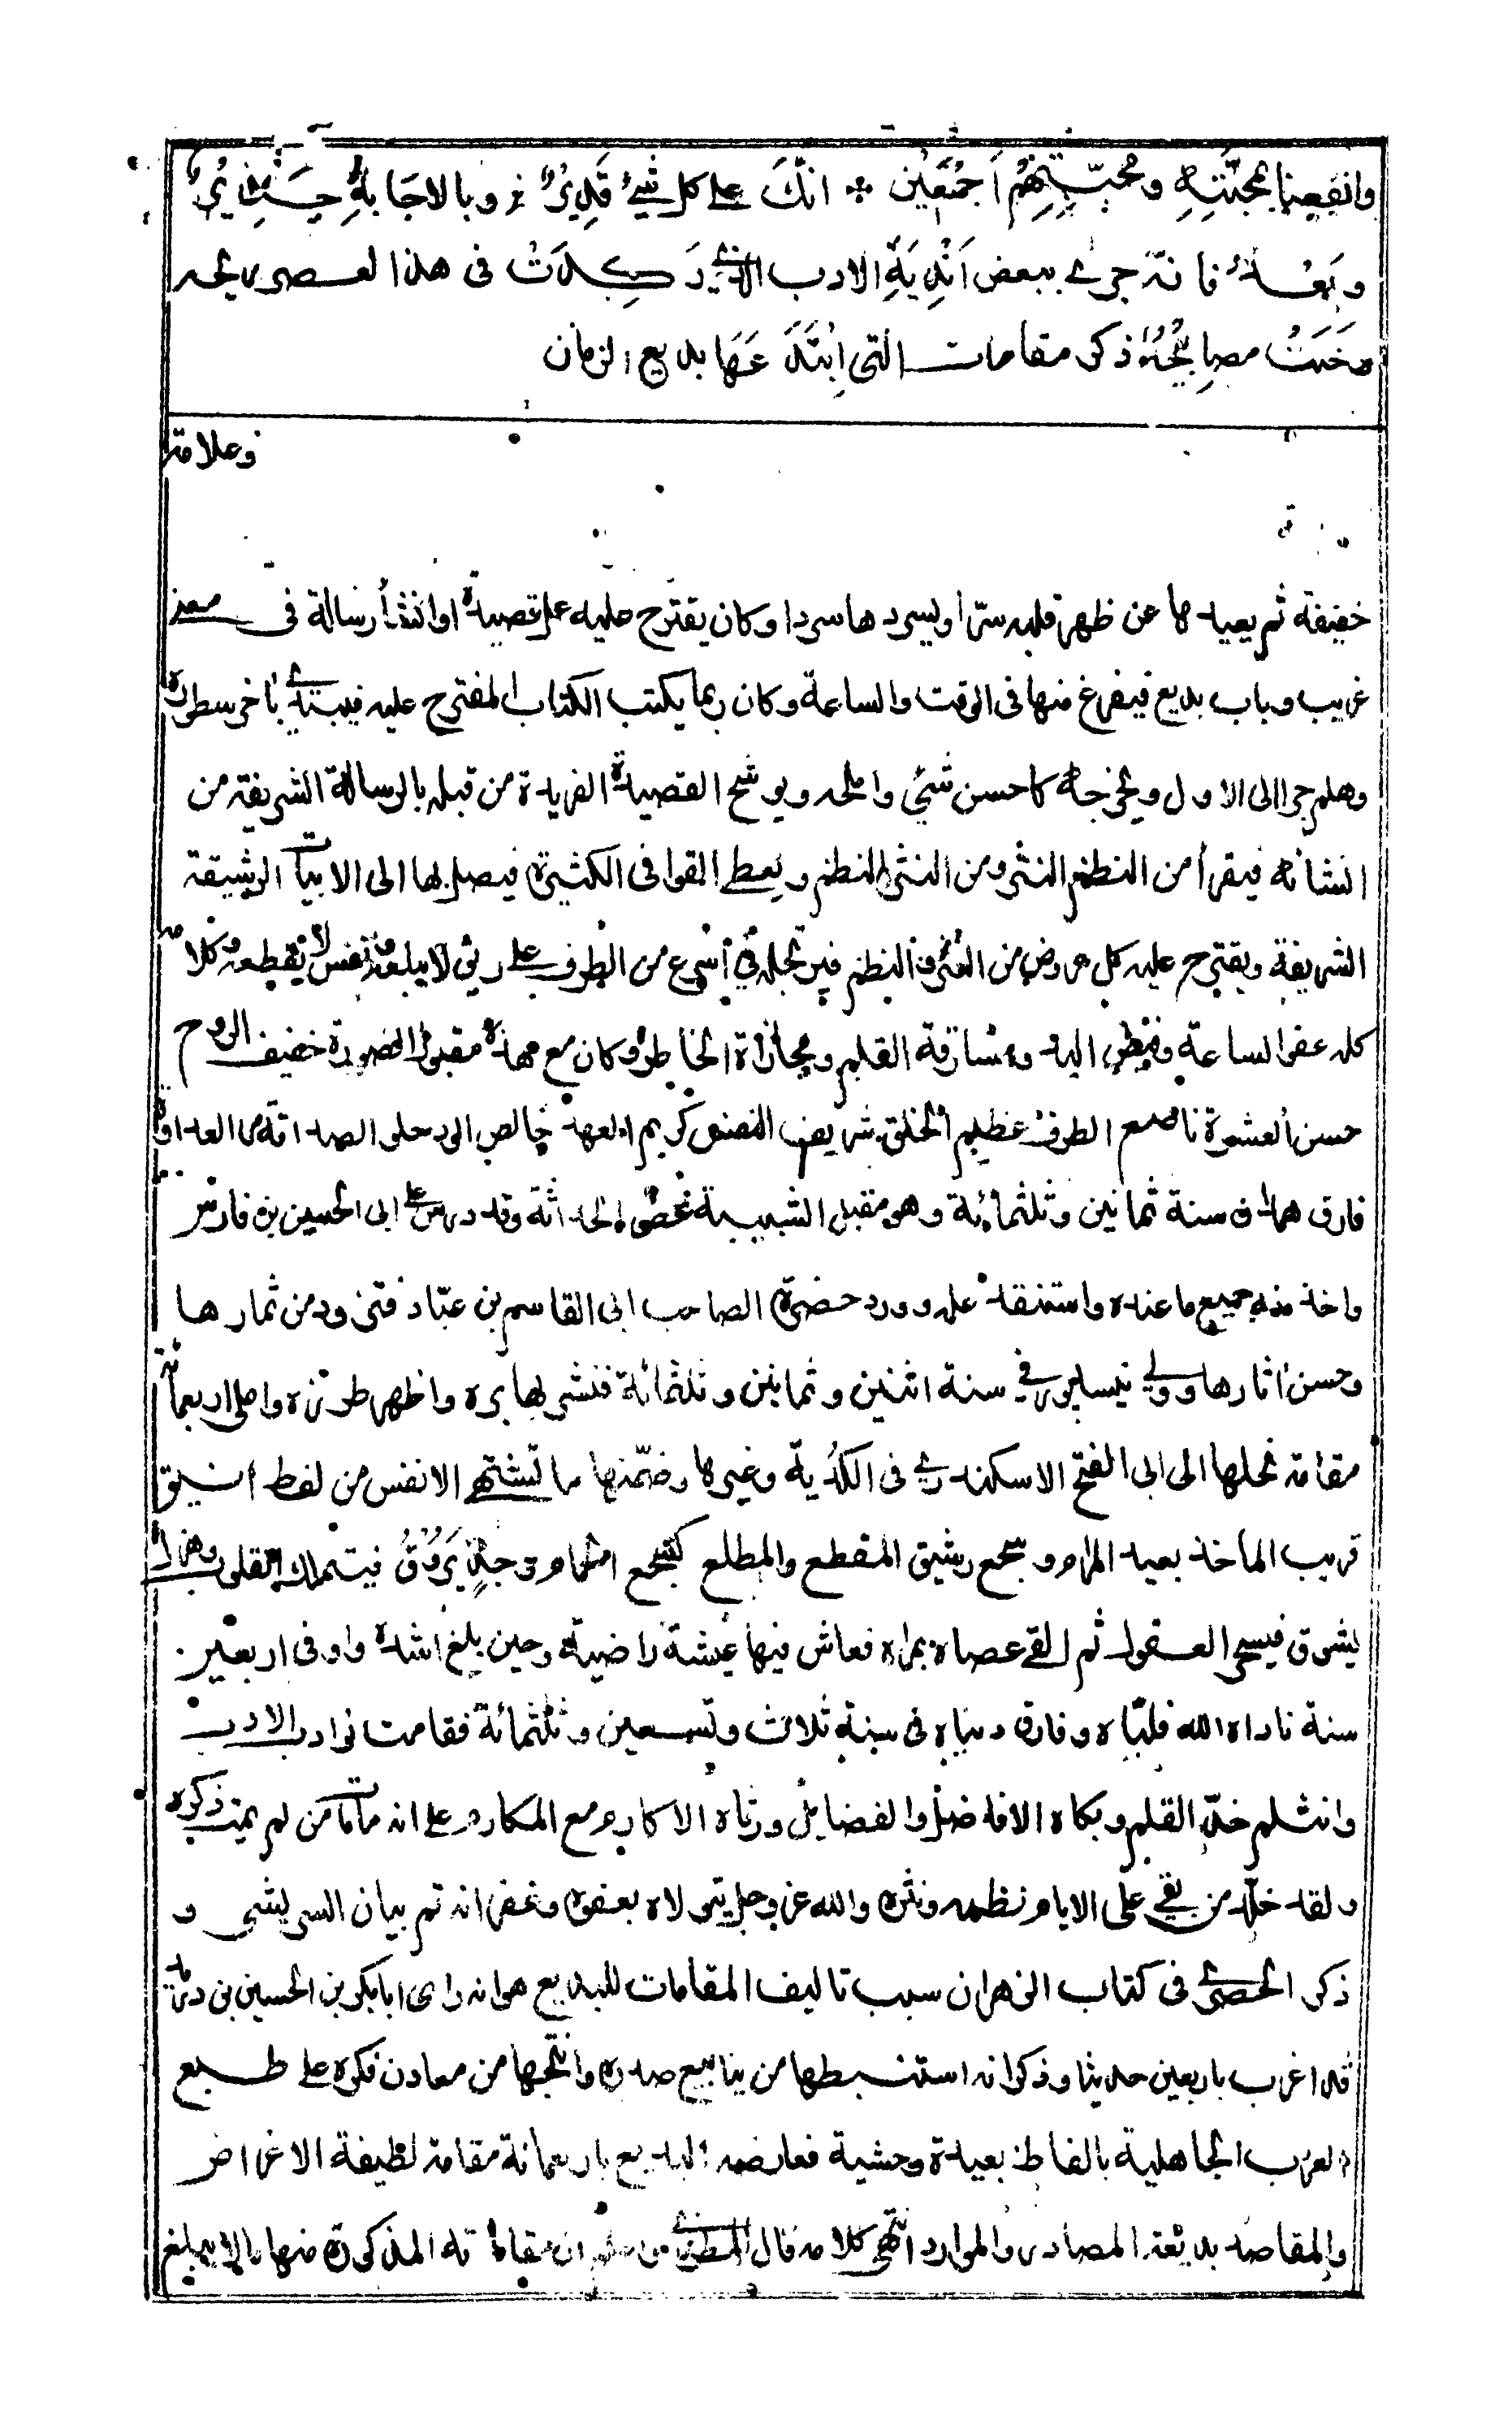 وانفعنا بمحبّتِهِ ومحبّتِهِم اَجمَعَين * انّكَ على كل شيءٍ قَدِيرٌ وبالاجَابةِ جَدِيرٌ
وبَعْدُ فانه جرى ببعض اَنْدِيَةِ الادب الذي رَكدَتْ فى هذا العصر ريحه
وخَبَتْ مصابِيْحُهُ ذكر مقامات التى ابْتَدَعَهَا بديع الزمان
وعلامة
خفيفة ثم يعيدها عن ظهر قلبه سرّا ويسردها سردا وكان يقترح عليه عمل قصيدة او انشأ رسالة فى معنى
غريب وباب بديع فيفرغ منها فى الوقت والساعة وكان ربما يكتب الكتاب المقترح عليه فيبتدئ باخر سطوره
وهلم جرا الى الاول ويخرجه كاحسن شئ واملحه ويوشح القصيدة الفريدة من قبله بالرسالة الشريفة من
انشائه فيقرأ من النظم النثر ومن النثر النظم ويعطى القوافى الكثيرة فيصل بها الى الابيات الرشيقة
الشريفة ويقترح عليه كل عروض من النثر والنظم فيرتجله فى اسرع من الطرف على ريق لا يبلعه ونفس لا يقطعه وكلامه
كله عفو الساعة وفيض اليد ومسارقة القلم ومجاراة الخاطر وكان مع هذا مقبول الصورة خفيف الروح
حسن العشرة ناصع الطرف عظيم الخلق شريف النفس كريم العهد خالص الود حلو الصداقة مر العداوة
فارق همدان سنة ثمانين وثلثمائة وهو مقبل الشبيبة غض الحداثة وقد درس على ابى الحسين بن فارس
واخذ منه جميع ما عنده واستنفد علمه وورد حضرة الصاحب ابى القاسم بن عبّاد فتزود من ثمارها
وحسن اثارها وولي نيسابور فى سنة اثنين وثمانين وثلثمائة فنشر بها بزه واظهر طرزه واملى اربعمائة
مقامة نحلها الى ابى الفتح الاسكندرى فى الكُدية وغيرها وضمّنها ما تشتهى الانفس من لفظ انيق
قريب الماخذ بعيد المرام وسجع رشيق المقطع والمطلع كسجع الحمام وجدٍ يَرُوْقُ فيتملك القلوب وهزل
يشوق فيسحر العقول ثم القى عصاه بهراه فعاش فيها عيشة راضية وحين بلغ اشده واوفى اربعين
سنة ناداه الله فلبّاه وفارق دنياه فى سنة ثلاث وتسعين وثلثمائة فقامت نوادب الادب
وانثلم حدّ القلم وبكاه الافاضل والفضايل ورثاه الاكارم مع المكارم على انه ما مات من لم يمت ذكره
ولقد خلّد من بقى على الايام نظمه ونثره والله عز وجل يتولاه بعفوه وغفرانه تم بيان السريشى و
ذكر الحصرى فى كتاب الزهر ان سبب تاليف المقامات للبديع هو انه راى ابا بكر بن الحسين بن دريد
قد اغرب باربعين حديثا وذكر انه استنبطها من ينابيع صدره وانتجها من معادن فكره على طبع
العرب الجاهلية بالفاظ بعيدة وحشية فعارضه البديع باربعمائة مقامة لطيفة الاغراض
والمقاصد بديعة المصادر والموارد انتهى كلامه قال المطرزى مقاماته المذكورة منها ما لا يبلغ